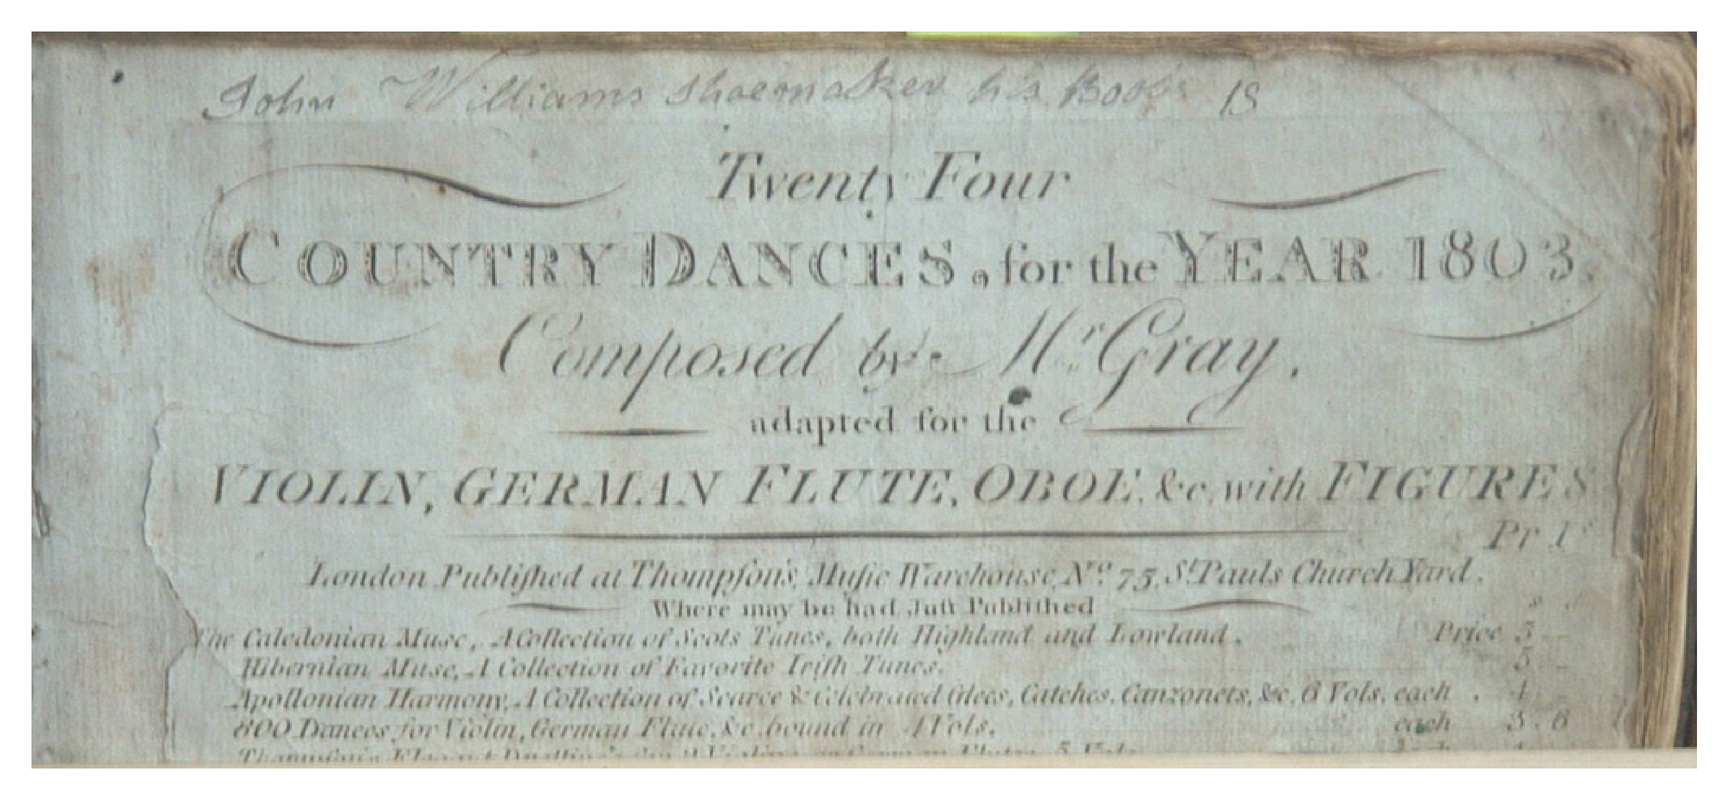 John Williams Shoemaker his Book 18
Twenty Four
COUNTRY DANCES, for the YEAR 1803.
Composed by Mr Gray.
adapted for the
VIOLIN, GERMAN FLUTE, OBOE, &c, with FIGURES
Pr 1s
London Publiſhed at Thompſon's Muſic Warehouse, No. 75, St. Pauls Church Yard.
Where may be had Juſt Publiſhed
The Caledonian Muse, A Collection of Scots Tunes, both Highland and Lowland. Price 5
Hibernian Muse, A Collection of Favorite Iriſh Tunes. 5
Apollonian Harmony, A Collection of Scarce & Celebrated Glees, Catches, Canzonets, &c, 6 Vols. each 4
800 Dances for Violin, German Flute, &c. bound in 4 Vols. each 3. 6